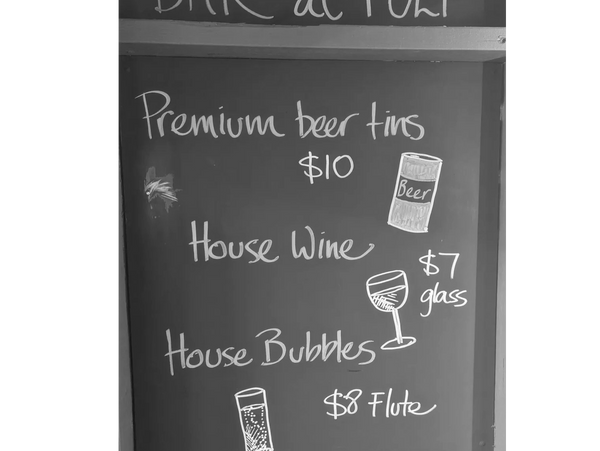 BAR at
Premium beer tins
$10
Beer
House Wine
$7
glass
House Bubbles
$8 Flute